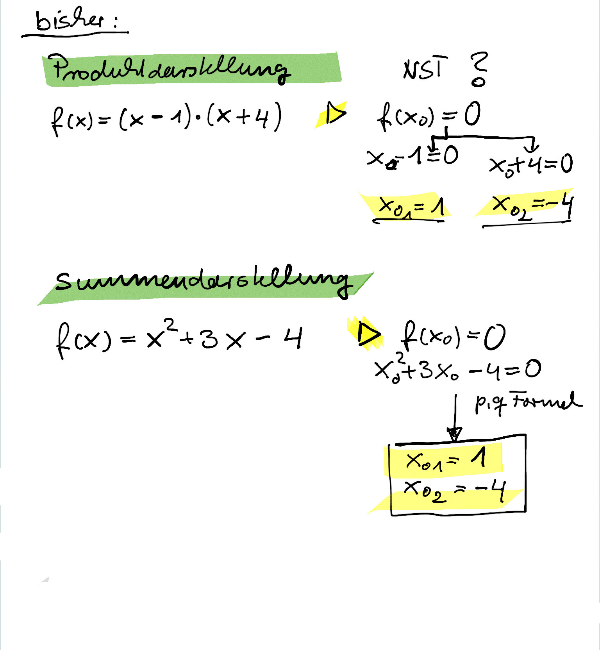 bisher:
Produktdarstellung
NST ?
f(x) = (x - 1) · (x + 4)
▷ f(x₀) = 0
x₀-1=0
x₀+4=0
x₀₁ = 1
x₀₂ = -4
Summendarstellung
f(x) = x² + 3x - 4
▷ f(x₀) = 0
x₀² + 3x₀ - 4 = 0
p,q Formel
x₀₁ = 1
x₀₂ = -4